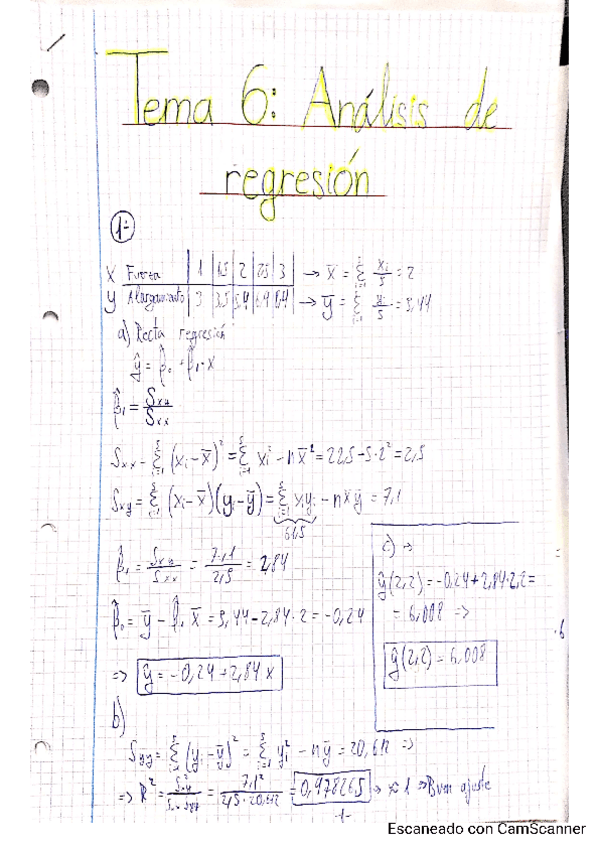 Tema 6: Análisis de
regresión
1-
X Fuerza | 1 | 1,5 | 2 | 2,5 | 3 → x̄ = Σ xᵢ/5 = 2
y Alargamiento | 3 | 3,5 | 5,4 | 6,9 | 8,4 → ȳ = Σ yᵢ/5 = 5,44
a) Recta regresión
ŷ = β̂₀ + β̂₁·x
β̂₁ = Sxy/Sxx
Sxx = Σ (xᵢ-x̄)² = Σ xᵢ² - nx̄² = 22,5-5·2² = 2,5
Sxy = Σ (xᵢ-x̄)(yᵢ-ȳ) = Σ xᵢyᵢ - nx̄ȳ = 7,1
61,5
β̂₁ = Sxy/Sxx = 7,1/2,5 = 2,84
β̂₀ = ȳ - β̂₁ x̄ = 5,44-2,84·2 = -0,24
=> ŷ = -0,24+2,84x
c) →
ŷ(2,2) = -0,24+2,84·2,2=
= 6,008 =>
ŷ(2,2) = 6,008
b)
Syy = Σ (yᵢ-ȳ)² = Σ yᵢ² - nȳ = 20,612 =>
=> R² = S²xy/Sxx·Syy = 7,1²/2,5·20,612 = 0,978265 → ≈ 1 => Buen ajuste
-1-
Escaneado con CamScanner